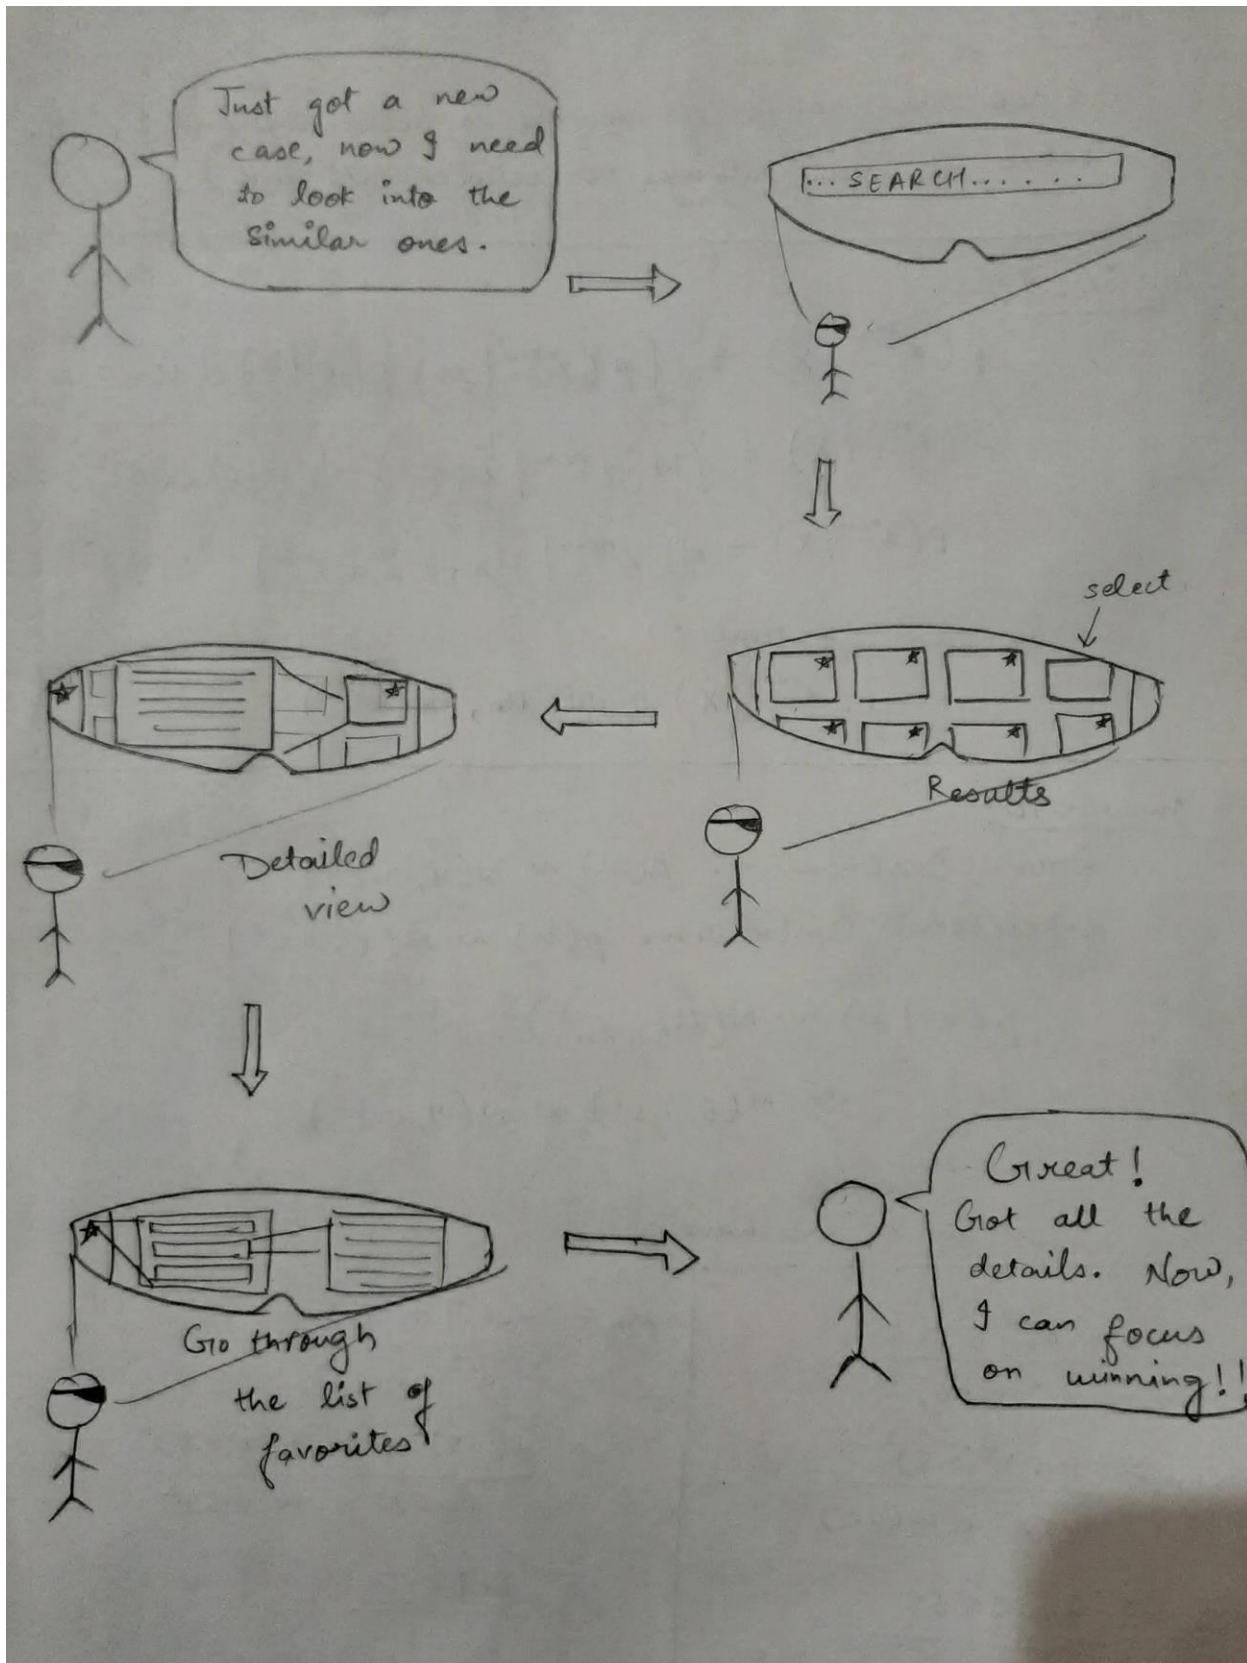 Just got a new
case, now I need
to look into the
similar ones.
... SEARCH......
select
Results
Detailed
view
Go through
the list of
favorites
Great!
Got all the
details. Now,
I can focus
on winning!!